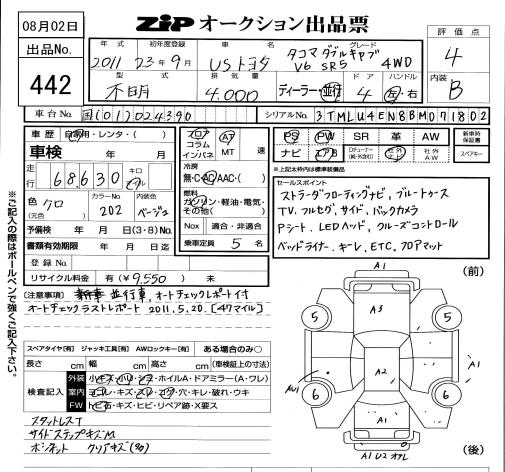 08月02日
ZIP オークション出品票
評価点
4
出品No.
442
年式
2011
初年度登録
23年9月
車名
USトヨタ
グレード
タコマ ダブルキャブ
V6 SR5 4WD
型式
不明
排気量
4.000
ディーラー・並行
ドア
4
ハンドル
左・右
内装
B
車台No.
国[01]024390
シリアルNo.
3TMLU4EN8BM071802
車歴 自家用・レンタ・( )
車検 年 月
走行 68,630 キロ
色 クロ
(元色)
カラーNo
202
内装色
ベージュ
予備検 年 月 日(3・8)No.
書類有効期限 年 月 日迄
登録No.
リサイクル料金 有(¥9,550) 未
フロア
コラム
インパネ
AT
MT
速
冷房
無・C・AC・AAC・( )
燃料
ガソリン・軽油・電気・
その他( )
Nox 適合・非適合
乗車定員 5 名
PS PW SR 革 AW
ナビ エアB
社外
ナビ
社外
AW
新車時
保証書
スペアキー
※上記太枠内は標準装備品
セールスポイント
ストラーダフローティングナビ, ブルートゥース
TV. フルセグ, サイド, バックカメラ
Pシート. LEDヘッド, クルーズコントロール
ベッドライナー. キーレ, ETC, フロアマット
[注意事項] 新車並行車, オートチェックレポート付
オートチェックラストレポート 2011.5.20. [47マイル]
スペアタイヤ[有] ジャッキ工具[有] AWロックキー[有] ある場合のみ○
長さ cm 幅 cm 高さ cm (車検証上の寸法)
検査記入
外装 小キズ・小凹・シミ・ホイルA・ドアミラー(A・ワレ)
室内 ヨゴレ・キズ・スレ・コゲ・穴・キレ・破れ・ウキ
FW トビ石・キズ・ヒビ・リペア跡・X要ス
スタットレスT
サイドステップキズM
ボンネット クリアキズ(30)
※ご記入の際はボールペンで強くご記入下さい。
(前)
A1
A3
5
5
A2
A1
6
6
A1
(後)